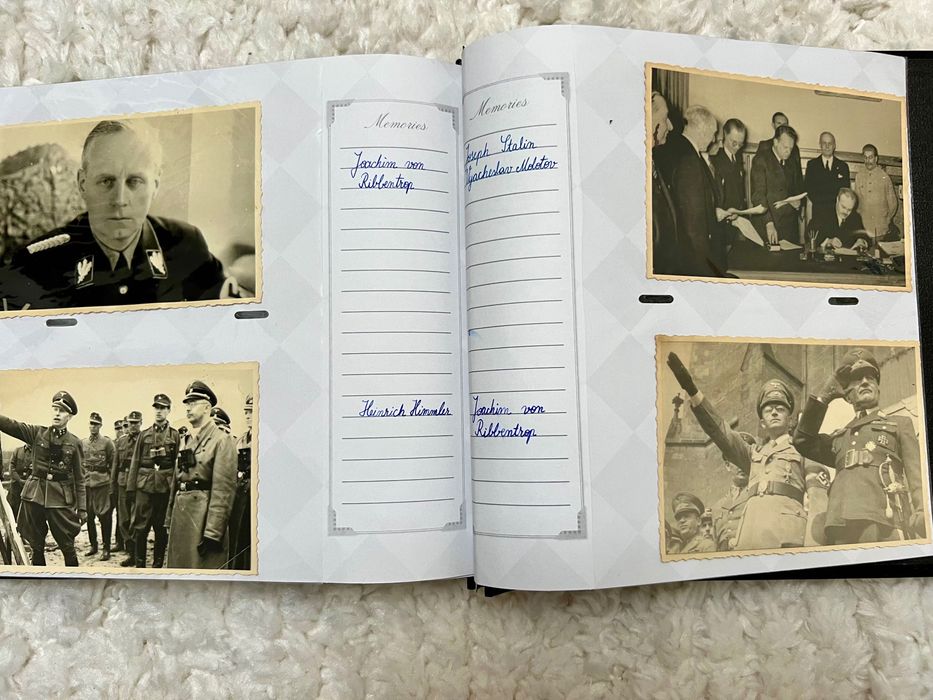 Memories
Joachim von
Ribbentrop
Heinrich Himmler
Memories
Joseph Stalin
Vyacheslav Molotov
Joachim von
Ribbentrop